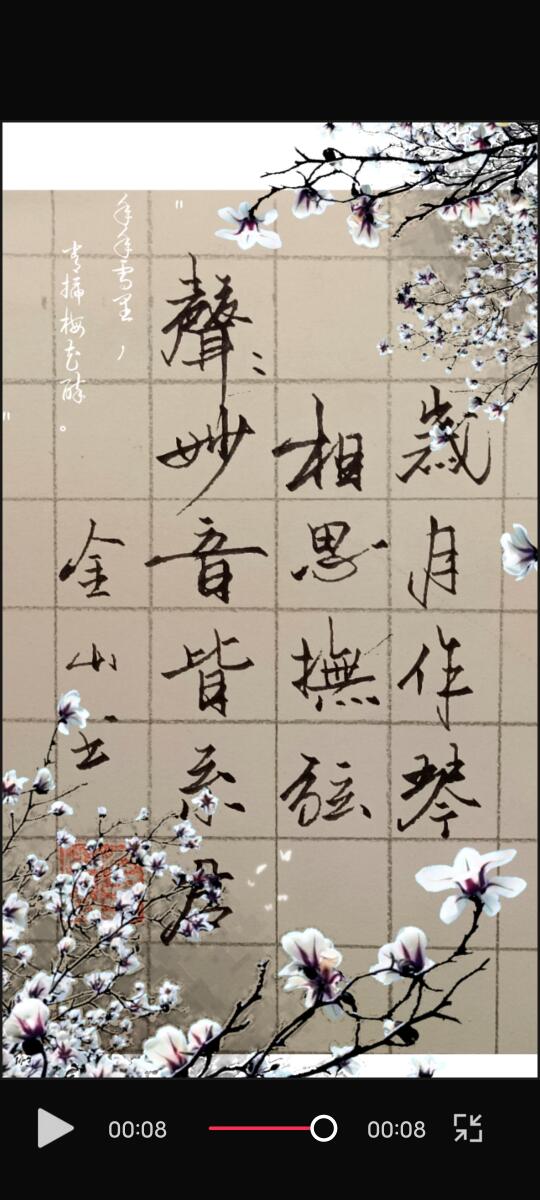 歲月作琴
相思撫弦
聲〻妙音皆系君
金山书
"年年雪里，
常插梅花醉。"
00:08 00:08